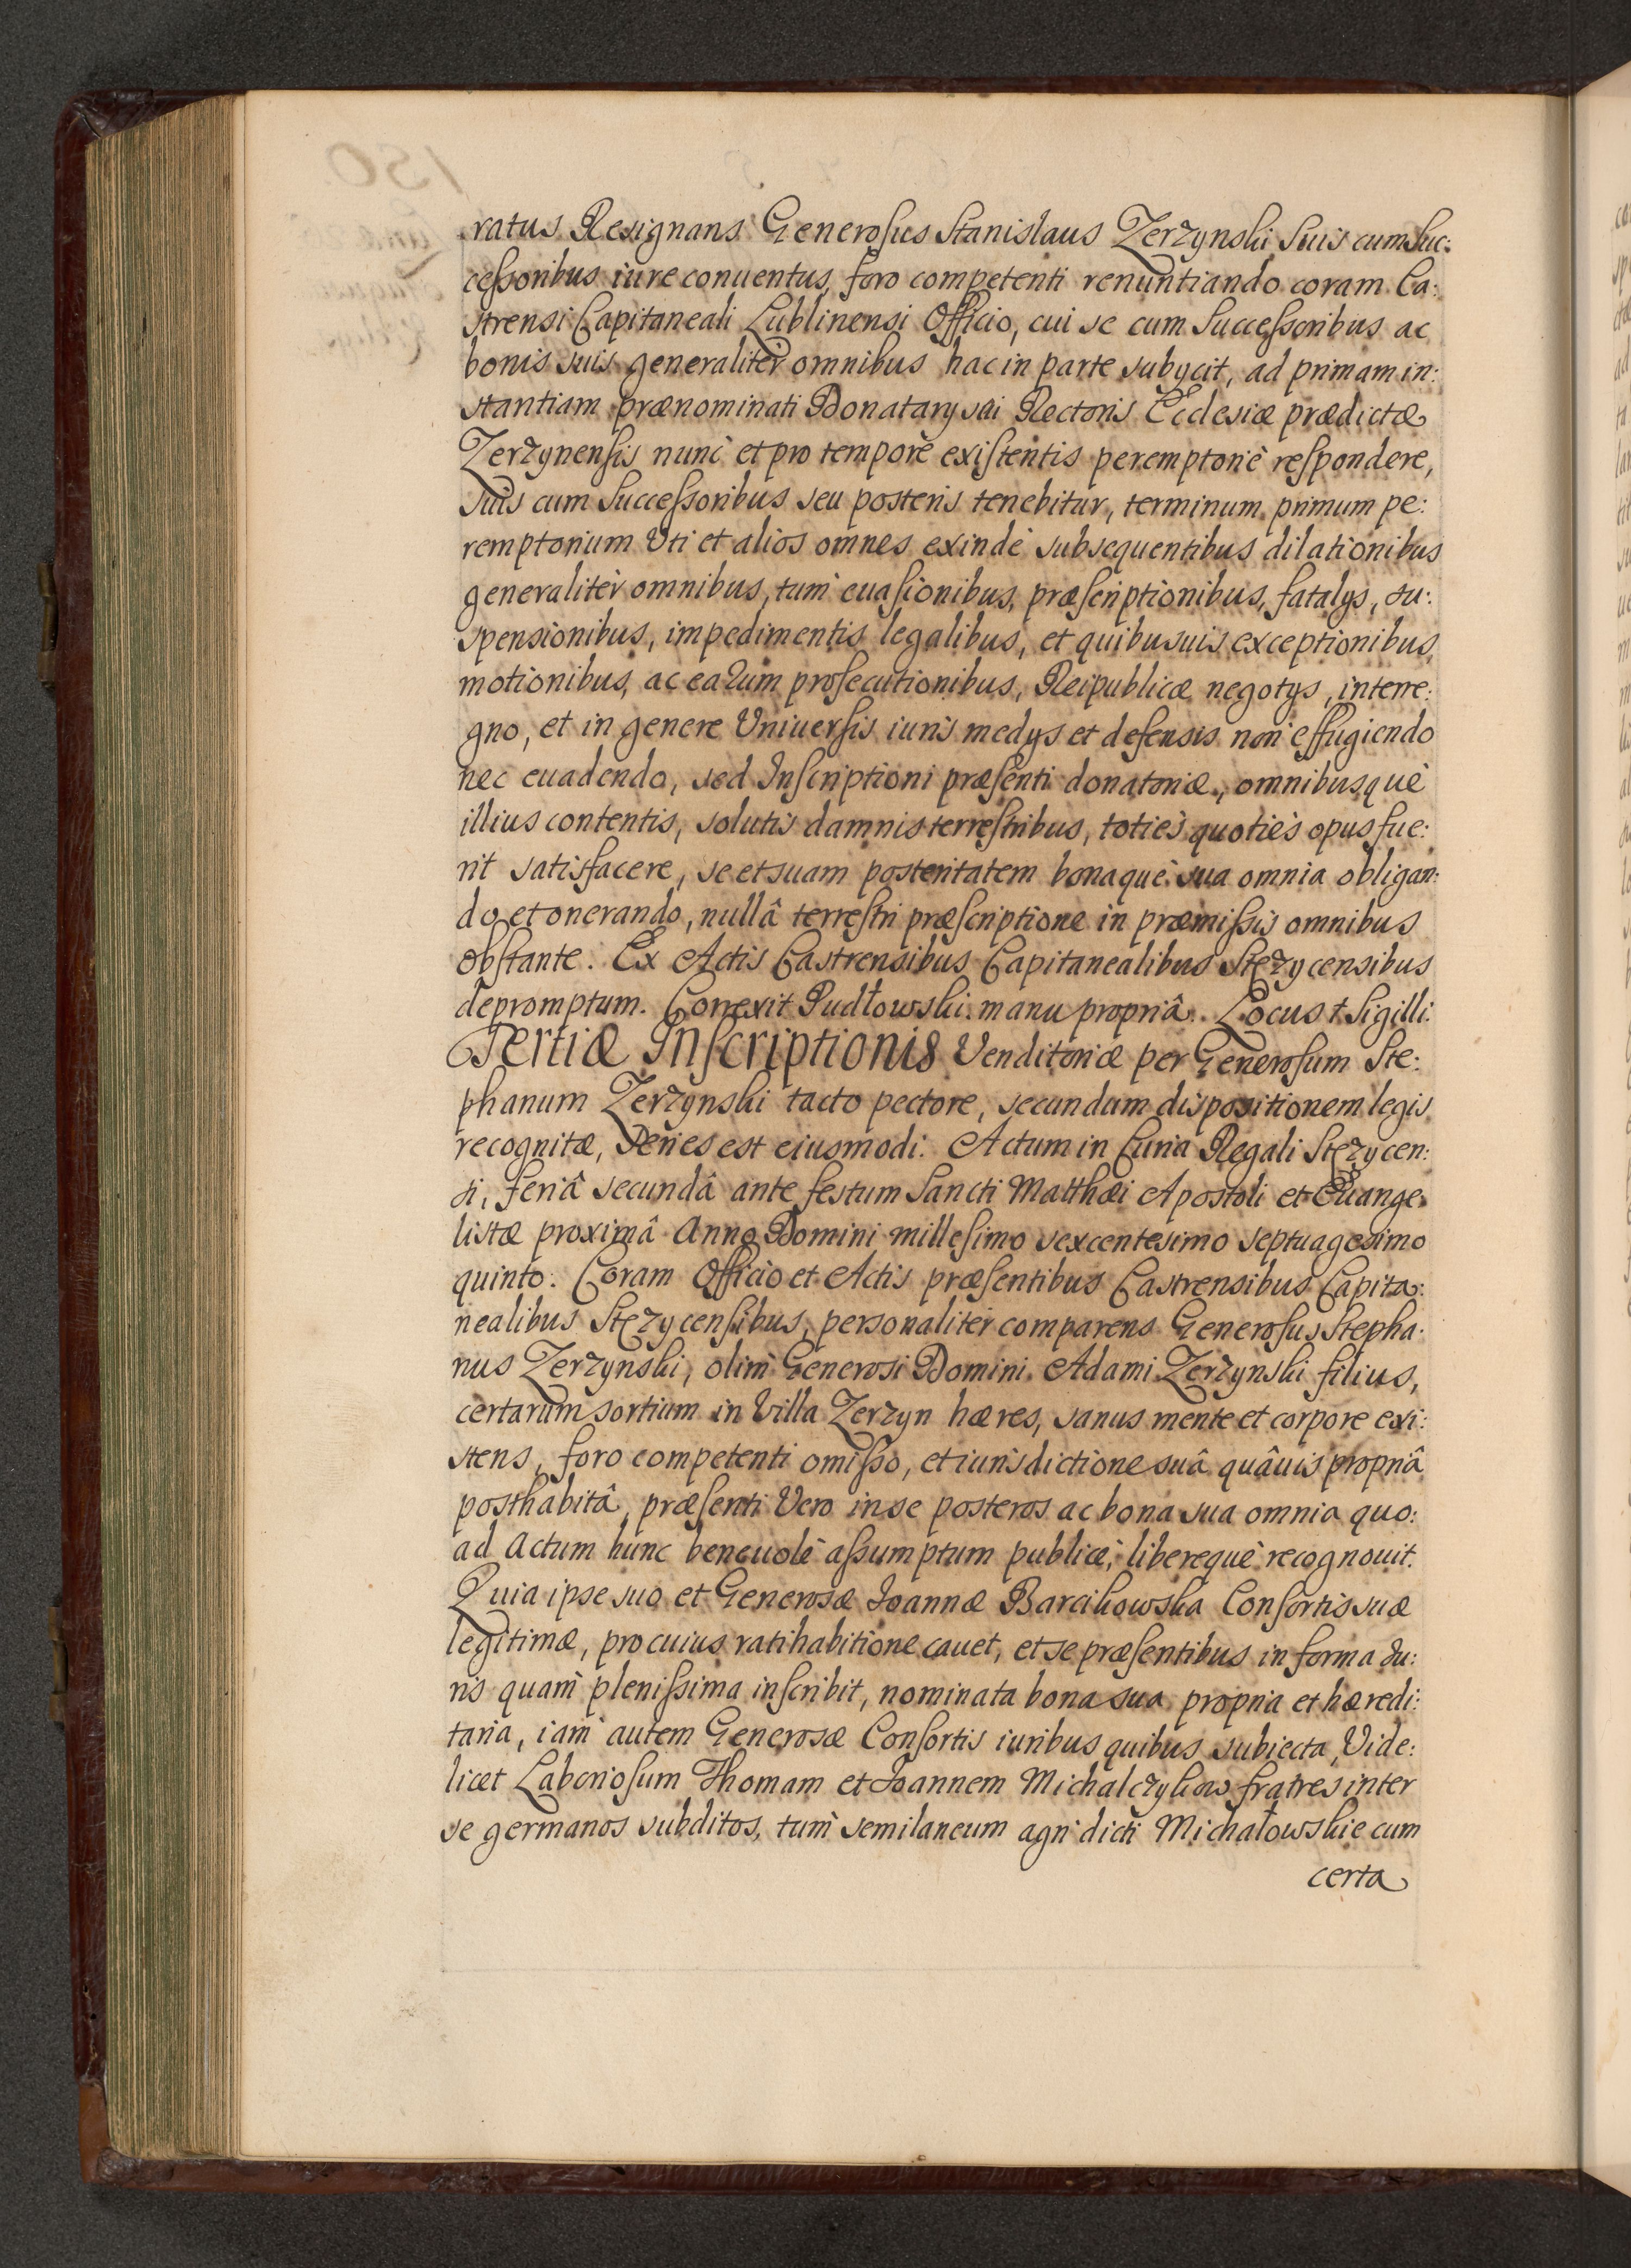 ratus Resignans Generosus Stanislaus Zerzynski suis cum suc:
cessoribus iure conuentus, foro competenti renuntiando coram Ca:
strensi Capitaneali Lublinensi Officio, cui se cum Successoribus ac
bonis suis generalitèr omnibus hac in parte subycit, ad primam in:
stantiam prænominati Donatarij sui Rectoris Ecclesiæ prædictæ
Zerzynensis nunc et pro temporè existentis peremptoriè respondere,
suis cum Successoribus seu posteris tenebitur, terminum primum pe:
remptorium Uti et alios omnes exindè subsequentibus dilationibus
generalitèr omnibus, tum euasionibus, præscriptionibus, fatalys, su:
spensionibus, impedimentis legalibus, et quibusuis exceptionibus,
motionibus, ac earum prosecutionibus, Reipublicæ negotys, interre:
gno, et in genere Uniuersis iuris medys et defensis non effugiendo
nec euadendo, sed Inscriptioni præsenti donatoriæ, omnibusquè
illius contentis, solutis damnis terrestribus, totiès quotiès opus fue:
rit satisfacere, se et suam posteritatem bonaquè sua omnia obligan:
do et onerando, nullâ terrestri præscriptione in præmissis omnibus
obstante. Ex Actis Castrensibus Capitanealibus Stęzycensibus
depromptum. Correxit Pudłowski manu propriâ. Locus † Sigilli.
Tertiæ Inscriptionis Venditoriæ per Generosum Ste:
phanum Zerzynski tacto pectore, secundum dispositionem legis
recognitæ, Series est eiusmodi. Actum in Curia Regali Stęzycen:
si, feriâ secundâ ante festum Sancti Matthæi Apostoli et Euange:
listæ proximâ Anno Domini millesimo sexcentesimo septuagesimo
quinto. Coram Officio et Actis præsentibus Castrensibus Capita:
nealibus Stęzycensibus, personalitèr comparens Generosus Stepha:
nus Zerzynski, olim Generosi Domini Adami Zerzynski filius,
certarum sortium in Villa Zerzyn hæres, sanus mente et corpore exi:
stens, foro competenti omisso, et iurisdictione suâ quâuis propriâ
posthabitâ, præsenti Vero in se posteros ac bona sua omnia quo:
ad Actum hunc beneuolè assumptum publicè, liberequè recognouit.
Quia ipse suo et Generosæ Joannæ Barcikowska Consortis suæ
legitimæ, pro cuius ratihabitione cauet, et se præsentibus in forma Ju:
ris quam plenissima inscribit, nominata bona sua propria et hæredi:
taria, iam autem Generosæ Consortis iuribus quibus subiecta, Vide:
licet Laboriosum Thomam et Joannem Michalczykow fratres inter
se germanos subditos, tum semilaneum agri dicti Michałowskie cum
certa